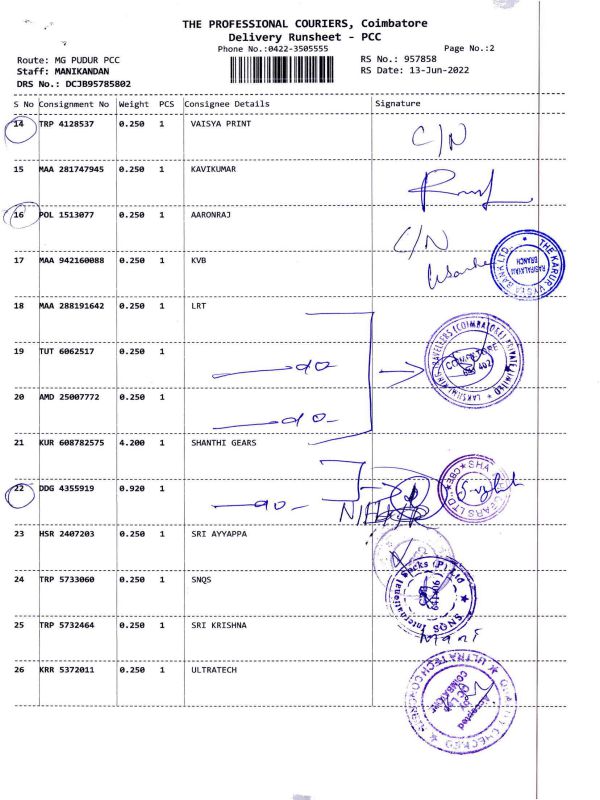 THE PROFESSIONAL COURIERS, Coimbatore
Delivery Runsheet - PCC
Phone No.:0422-3505555
Page No.:2
Route: MG PUDUR PCC
RS No.: 957858
Staff: MANIKANDAN
RS Date: 13-Jun-2022
DRS No.: DCJB95785802
S No Consignment No Weight PCS Consignee Details Signature
14 TRP 4128537 0.250 1 VAISYA PRINT C/N
15 MAA 281747945 0.250 1 KAVIKUMAR
16 POL 1513077 0.250 1 AARONRAJ C/N
17 MAA 942160088 0.250 1 KVB
THE KARUR VYSYA BANK LTD.
BRANCH
18 MAA 288191642 0.250 1 LRT
19 TUT 6062517 0.250 1 do
LAKSHMI RING TRAVELLERS (COIMBATORE) PRIVATE LIMITED
COIMBATORE
641 402
20 AMD 25007772 0.250 1 do
21 KUR 608782575 4.200 1 SHANTHI GEARS
22 DDG 4355919 0.920 1 do
GEARS LTD
CBE
23 HSR 2407203 0.250 1 SRI AYYAPPA
24 TRP 5733060 0.250 1 SNQS
SNQS International Socks (P) Ltd
25 TRP 5732464 0.250 1 SRI KRISHNA
Mani
26 KRR 5372011 0.250 1 ULTRATECH
ULTRATECH CONCRETE
QUALITY CHECKED
Accepted
by
QC Lab
COIMBATORE